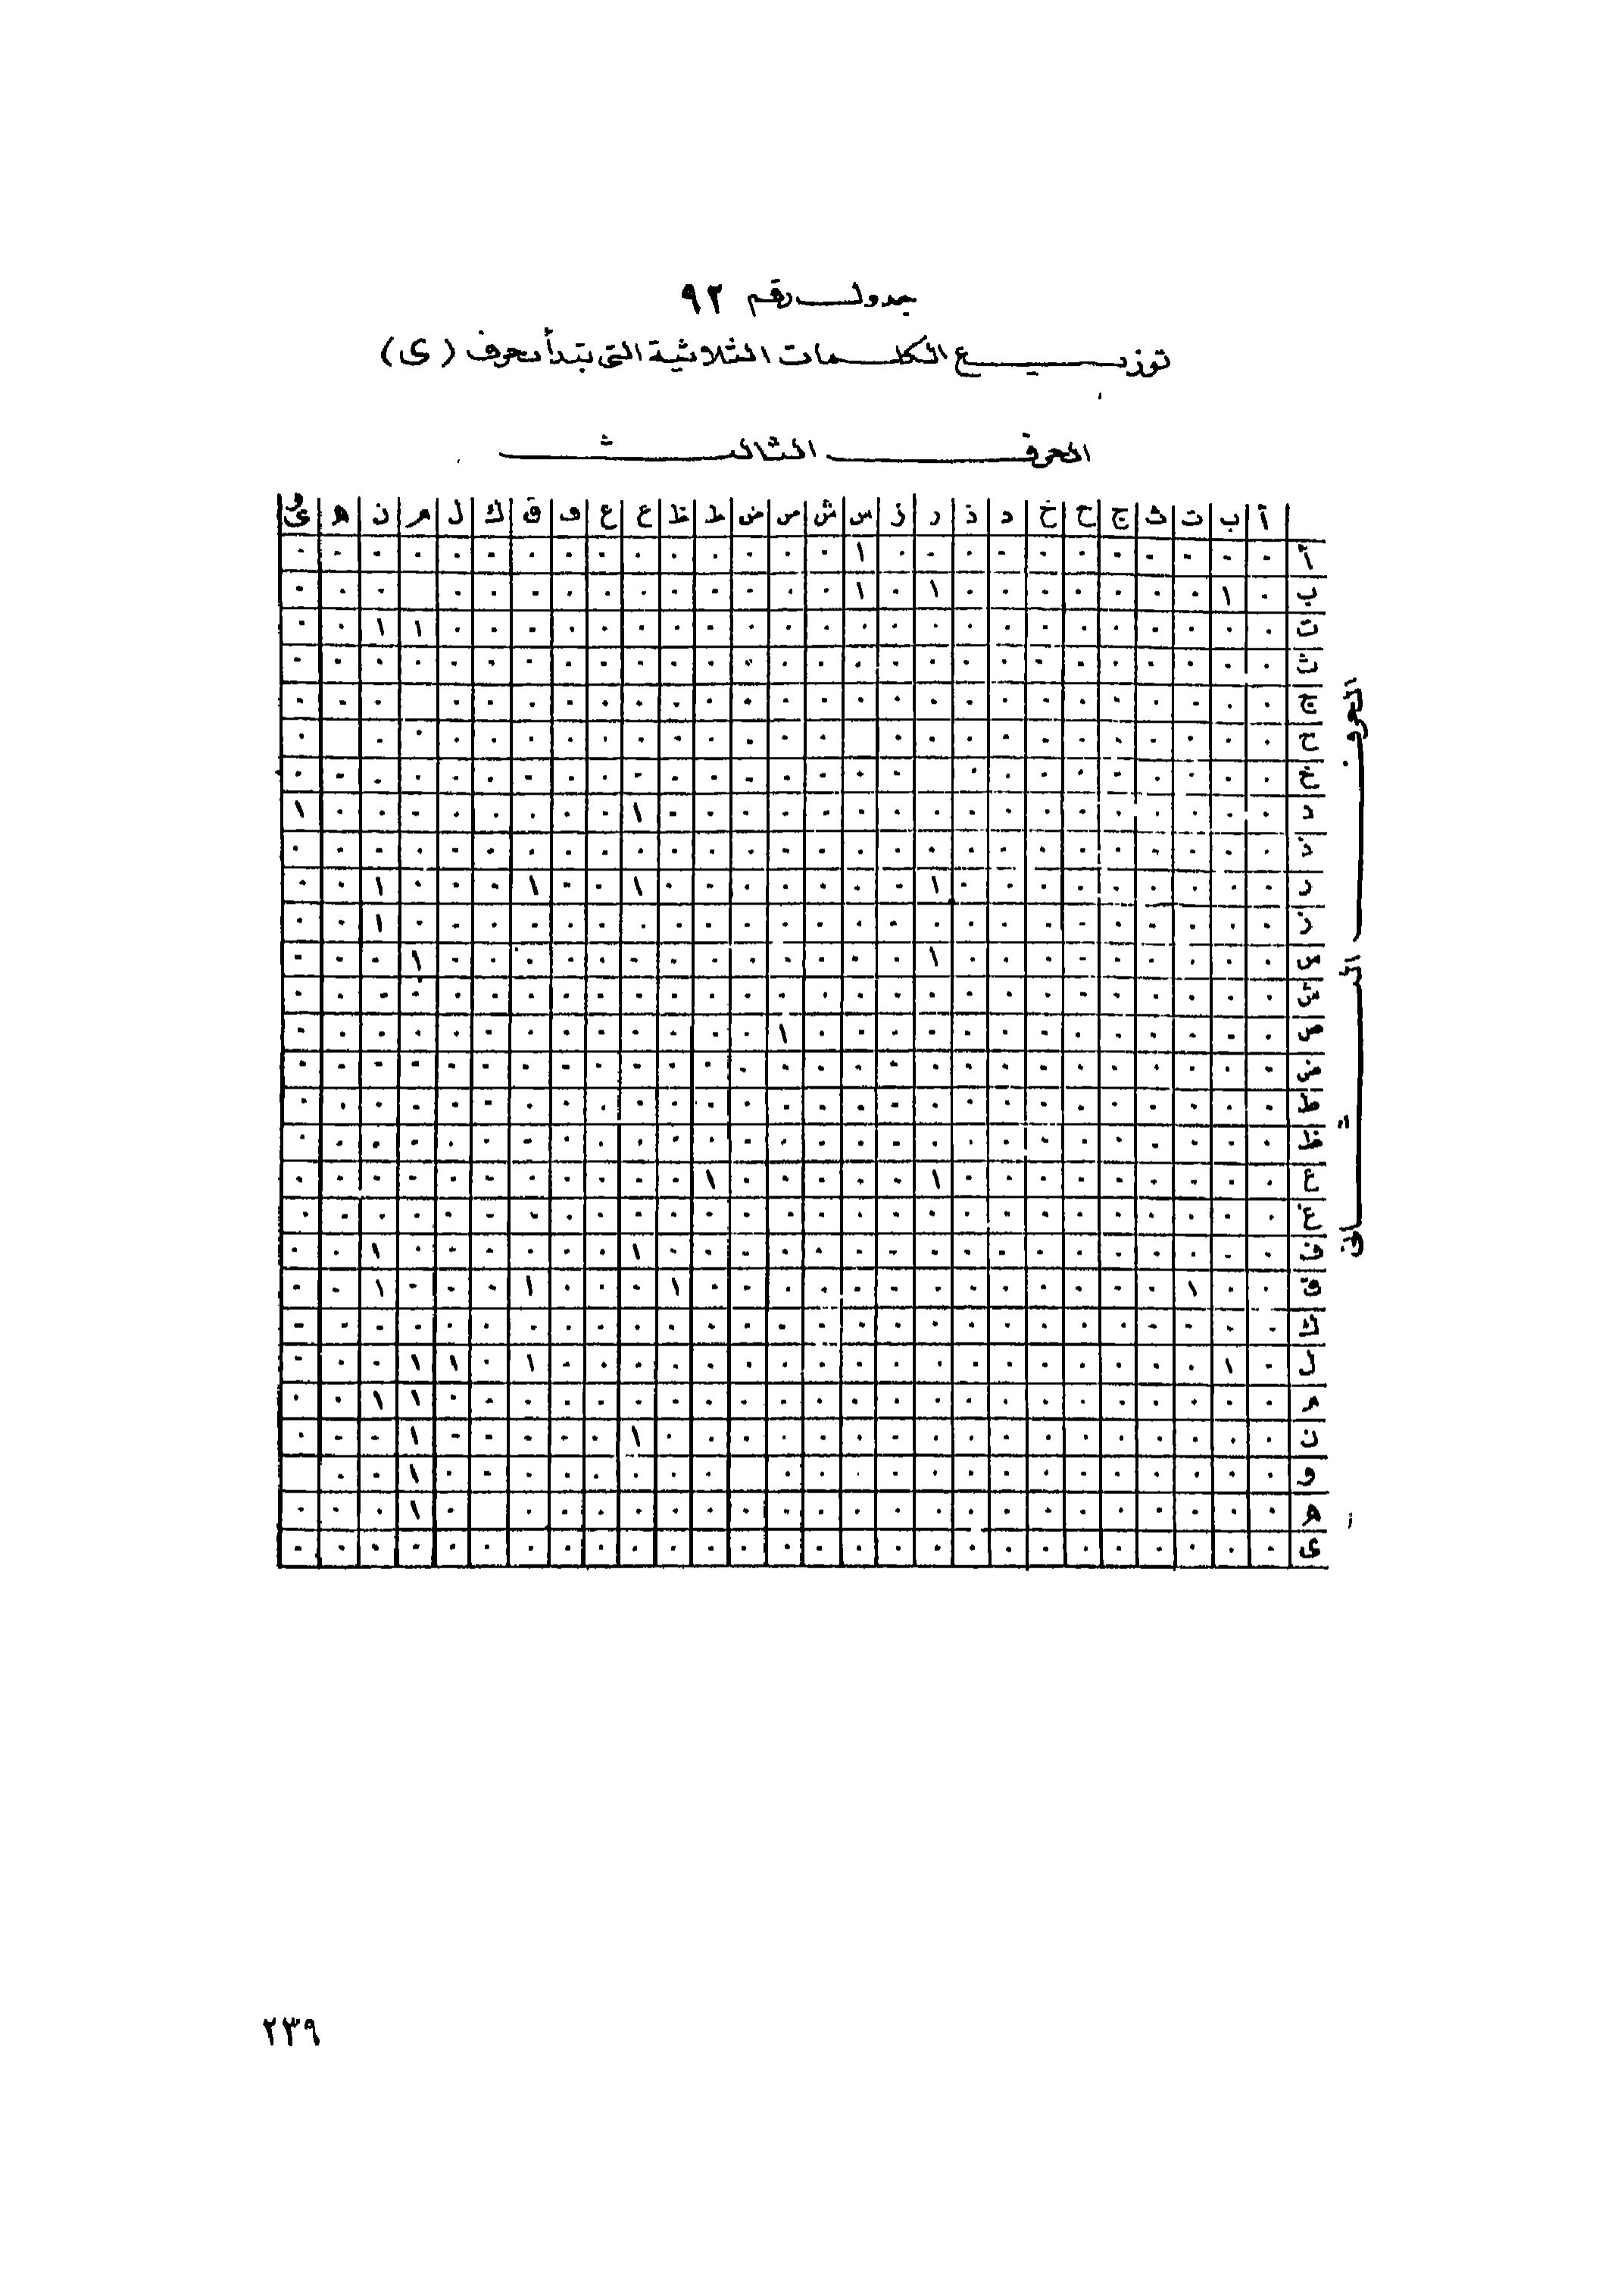 جدول رقم ٩٢
توزيع الكلمات الثلاثية التى تبدأ بحرف (ى)
الحرف الثالث
أ ب ت ث ج ح خ د ذ ر ز س ش ص ض ط ظ ع غ ف ق ك ل م ن ه و ى
أ ٠ ٠ ٠ ٠ ٠ ٠ ٠ ٠ ٠ ٠ ٠ ١ ٠ ٠ ٠ ٠ ٠ ٠ ٠ ٠ ٠ ٠ ٠ ٠ ٠ ٠ ٠
ب ٠ ١ ٠ ٠ ٠ ٠ ٠ ٠ ٠ ١ ٠ ١ ٠ ٠ ٠ ٠ ٠ ٠ ٠ ٠ ٠ ٠ ٠ ٠ ٠ ٠
ت ٠ ٠ ٠ ٠ ٠ ٠ ٠ ٠ ٠ ٠ ٠ ٠ ٠ ٠ ٠ ٠ ٠ ٠ ٠ ٠ ٠ ٠ ٠ ١ ١ ٠ ٠
ث ٠ ٠ ٠ ٠ ٠ ٠ ٠ ٠ ٠ ٠ ٠ ٠ ٠ ٠ ٠ ٠ ٠ ٠ ٠ ٠ ٠ ٠ ٠ ٠ ٠ ٠ ٠
ج ٠ ٠ ٠ ٠ ٠ ٠ ٠ ٠ ٠ ٠ ٠ ٠ ٠ ٠ ٠ ٠ ٠ ٠ ٠ ٠ ٠ ٠ ٠ ٠ ٠ ٠
ح ٠ ٠ ٠ ٠ ٠ ٠ ٠ ٠ ٠ ٠ ٠ ٠ ٠ ٠ ٠ ٠ ٠ ٠ ٠ ٠ ٠ ٠ ٠ ٠ ٠
خ ٠ ٠ ٠ ٠ ٠ ٠ ٠ ٠ ٠ ٠ ٠ ٠ ٠ ٠ ٠ ٠ ٠ ٠ ٠ ٠ ٠ ٠ ٠ ٠ ٠ ٠
د ٠ ٠ ٠ ٠ ٠ ٠ ٠ ٠ ٠ ٠ ٠ ٠ ٠ ٠ ٠ ٠ ٠ ١ ٠ ٠ ٠ ٠ ٠ ٠ ٠ ٠ ١
ذ ٠ ٠ ٠ ٠ ٠ ٠ ٠ ٠ ٠ ٠ ٠ ٠ ٠ ٠ ٠ ٠ ٠ ٠ ٠ ٠ ٠ ٠ ٠ ٠ ٠ ٠ ٠
ر ٠ ٠ ٠ ٠ ٠ ٠ ٠ ٠ ٠ ١ ٠ ٠ ٠ ٠ ٠ ٠ ٠ ١ ٠ ٠ ١ ٠ ٠ ٠ ١ ٠ ٠
ز ٠ ٠ ٠ ٠ ٠ ٠ ٠ ٠ ٠ ٠ ٠ ٠ ٠ ٠ ٠ ٠ ٠ ٠ ٠ ٠ ٠ ٠ ٠ ٠ ١ ٠ ٠
س ٠ ٠ ٠ ٠ ٠ ٠ ٠ ٠ ٠ ١ ٠ ٠ ٠ ٠ ٠ ٠ ٠ ٠ ٠ ٠ ٠ ٠ ٠ ١ ٠ ٠ ٠
ش ٠ ٠ ٠ ٠ ٠ ٠ ٠ ٠ ٠ ٠ ٠ ٠ ٠ ٠ ٠ ٠ ٠ ٠ ٠ ٠ ٠ ٠ ٠ ٠ ٠ ٠ ٠
ص ٠ ٠ ٠ ٠ ٠ ٠ ٠ ٠ ٠ ٠ ٠ ٠ ٠ ١ ٠ ٠ ٠ ٠ ٠ ٠ ٠ ٠ ٠ ٠ ٠ ٠ ٠
ض ٠ ٠ ٠ ٠ ٠ ٠ ٠ ٠ ٠ ٠ ٠ ٠ ٠ ٠ ٠ ٠ ٠ ٠ ٠ ٠ ٠ ٠ ٠ ٠ ٠ ٠ ٠
ط ٠ ٠ ٠ ٠ ٠ ٠ ٠ ٠ ٠ ٠ ٠ ٠ ٠ ٠ ٠ ٠ ٠ ٠ ٠ ٠ ٠ ٠ ٠ ٠ ٠ ٠ ٠
ظ ٠ ٠ ٠ ٠ ٠ ٠ ٠ ٠ ٠ ٠ ٠ ٠ ٠ ٠ ٠ ٠ ٠ ٠ ٠ ٠ ٠ ٠ ٠ ٠ ٠ ٠ ٠
ع ٠ ٠ ٠ ٠ ٠ ٠ ٠ ٠ ٠ ١ ٠ ٠ ٠ ٠ ٠ ١ ٠ ٠ ٠ ٠ ٠ ٠ ٠ ٠ ٠ ٠ ٠
غ ٠ ٠ ٠ ٠ ٠ ٠ ٠ ٠ ٠ ٠ ٠ ٠ ٠ ٠ ٠ ٠ ٠ ٠ ٠ ٠ ٠ ٠ ٠ ٠ ٠ ٠ ٠
ف ٠ ٠ ٠ ٠ ٠ ٠ ٠ ٠ ٠ ٠ ٠ ٠ ٠ ٠ ٠ ٠ ٠ ١ ٠ ٠ ٠ ٠ ٠ ٠ ١ ٠ ٠
ق ٠ ٠ ١ ٠ ٠ ٠ ٠ ٠ ٠ ٠ ٠ ٠ ٠ ٠ ٠ ٠ ١ ٠ ٠ ٠ ١ ٠ ٠ ٠ ١ ٠ ٠
ك ٠ ٠ ٠ ٠ ٠ ٠ ٠ ٠ ٠ ٠ ٠ ٠ ٠ ٠ ٠ ٠ ٠ ٠ ٠ ٠ ٠ ٠ ٠ ٠ ٠ ٠ ٠
ل ٠ ١ ٠ ٠ ٠ ٠ ٠ ٠ ٠ ٠ ٠ ٠ ٠ ٠ ٠ ٠ ٠ ٠ ٠ ٠ ١ ٠ ١ ١ ٠ ٠ ٠
م ٠ ٠ ٠ ٠ ٠ ٠ ٠ ٠ ٠ ٠ ٠ ٠ ٠ ٠ ٠ ٠ ٠ ٠ ٠ ٠ ٠ ٠ ٠ ١ ١ ٠ ٠
ن ٠ ٠ ٠ ٠ ٠ ٠ ٠ ٠ ٠ ٠ ٠ ٠ ٠ ٠ ٠ ٠ ٠ ١ ٠ ٠ ٠ ٠ ٠ ١ ٠ ٠ ٠
و ٠ ٠ ٠ ٠ ٠ ٠ ٠ ٠ ٠ ٠ ٠ ٠ ٠ ٠ ٠ ٠ ٠ ٠ ٠ ٠ ٠ ٠ ١ ٠ ٠
ه ٠ ٠ ٠ ٠ ٠ ٠ ٠ ٠ ٠ ٠ ٠ ٠ ٠ ٠ ٠ ٠ ٠ ٠ ٠ ٠ ٠ ٠ ١ ٠ ٠ ٠
ى ٠ ٠ ٠ ٠ ٠ ٠ ٠ ٠ ٠ ٠ ٠ ٠ ٠ ٠ ٠ ٠ ٠ ٠ ٠ ٠ ٠ ٠ ٠ ٠ ٠ ٠ ٠
الحرف الثانى
٢٣٩